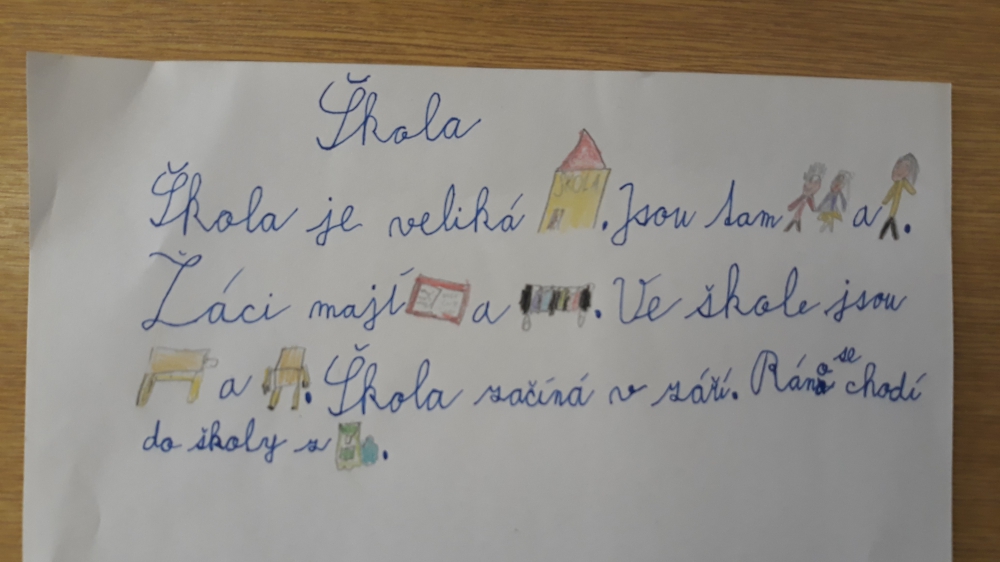 Škola
Škola je veliká ŠKOLA. Jsou tam a.
Žáci mají a. Ve škole jsou
a. Škola začíná v září. Ráno se chodí
do školy s.